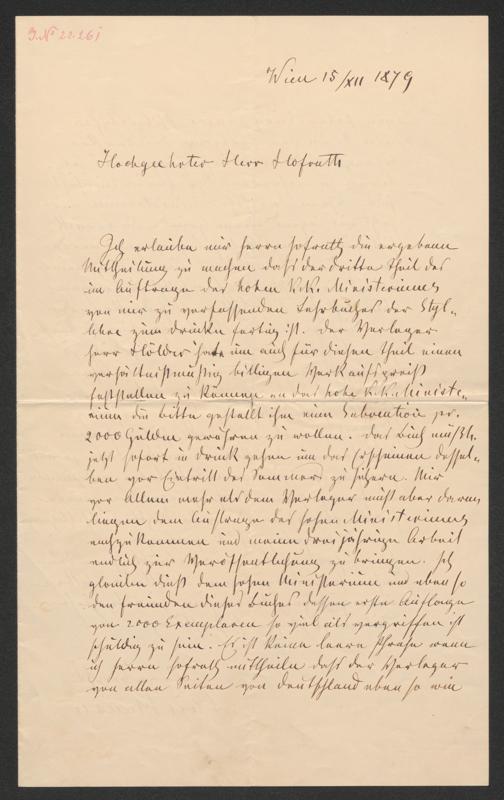 J.N. 22.261
Wien 15/XII 1879
Hochgeehrter Herr Hofrath
Ich erlaube mir Herrn Hofrath die ergebene
Mittheilung zu machen dass der dritte Theil des
im Auftrage des hohen k.k. Ministeriums
von mir zu verfassenden Lehrbuches der Styl-
lehre zum drucke fertig ist. Der Verleger
Herr Hölder hat um auch für diesen Theil einen
verhältnissmässig billigen Verkaufspreiss
feststellen zu können an das hohe k.k. Ministe-
rium die bitte gestellt ihm eine Subvention pr.
2000 Gulden gewähren zu wollen. Das Buch müsste
jetzt sofort in druck gehen um das Erscheinen dessel-
ben vor Eintritt des Sommers zu sichern. Mir
vor Allem mehr als dem Verleger muss aber daran
liegen dem Auftrage des hohen Ministeriums
nachzukommen und meine dreijährige Arbeit
endlich zur Veröffentlichung zu bringen. Ich
glaube diess dem hohen Ministerium und eben so
den freunden dieses Buches dessen erste Auflage
von 2000 Exemplaren so viel als vergriffen ist
schuldig zu sein. Es ist keine leere Phrase wenn
ich Herrn Hofrath mittheile dass der Verleger
von allen Seiten von Deutschland eben so wie